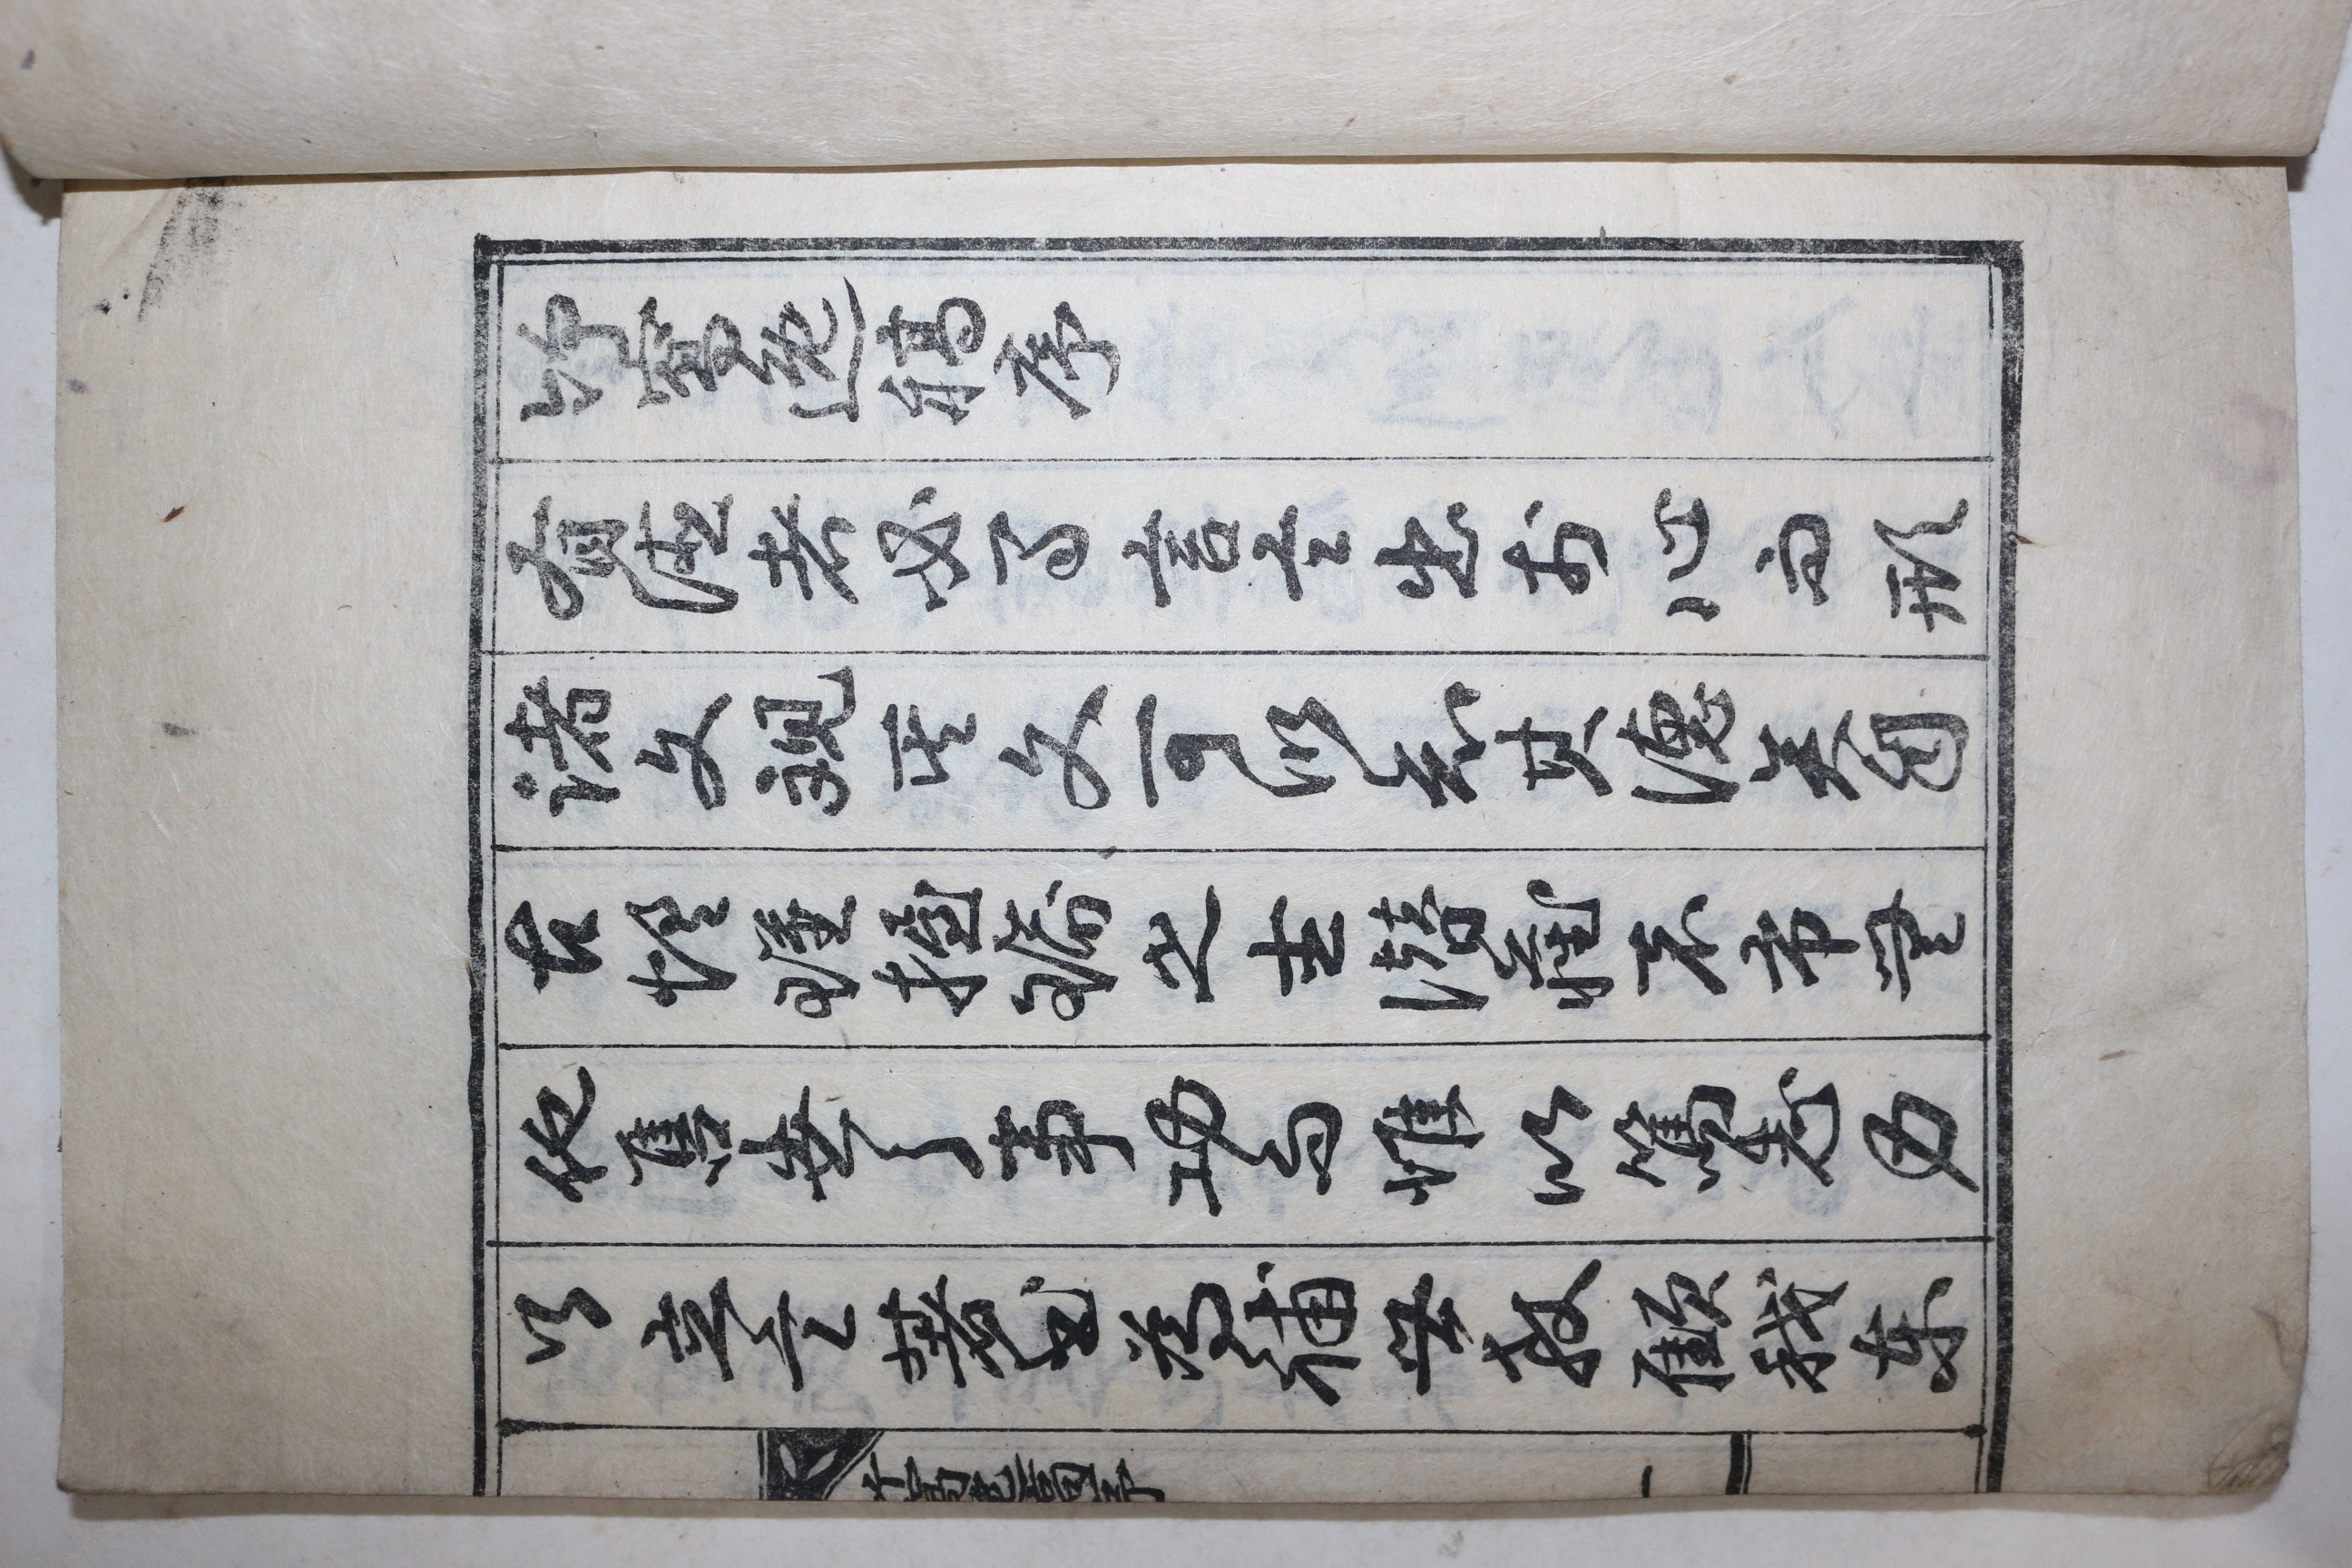 竹窩逸稿序
有德者必有言言出於心而形
諸文觀其文可以知其德矣自
古懷瑾握瑜之士潛藏不市無
他售世之事功而惟以篤志力
行立言著書為補世教顧我東
一